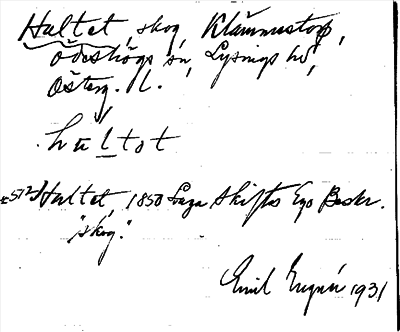 Hultet, skog, Klämmestorp,
Ödeshögs sn, Lysings hd,
Österg. l.
hultot
Hultet, 1850 Laga Skiftes Ego Beskr.
"skog."
Emil 1931